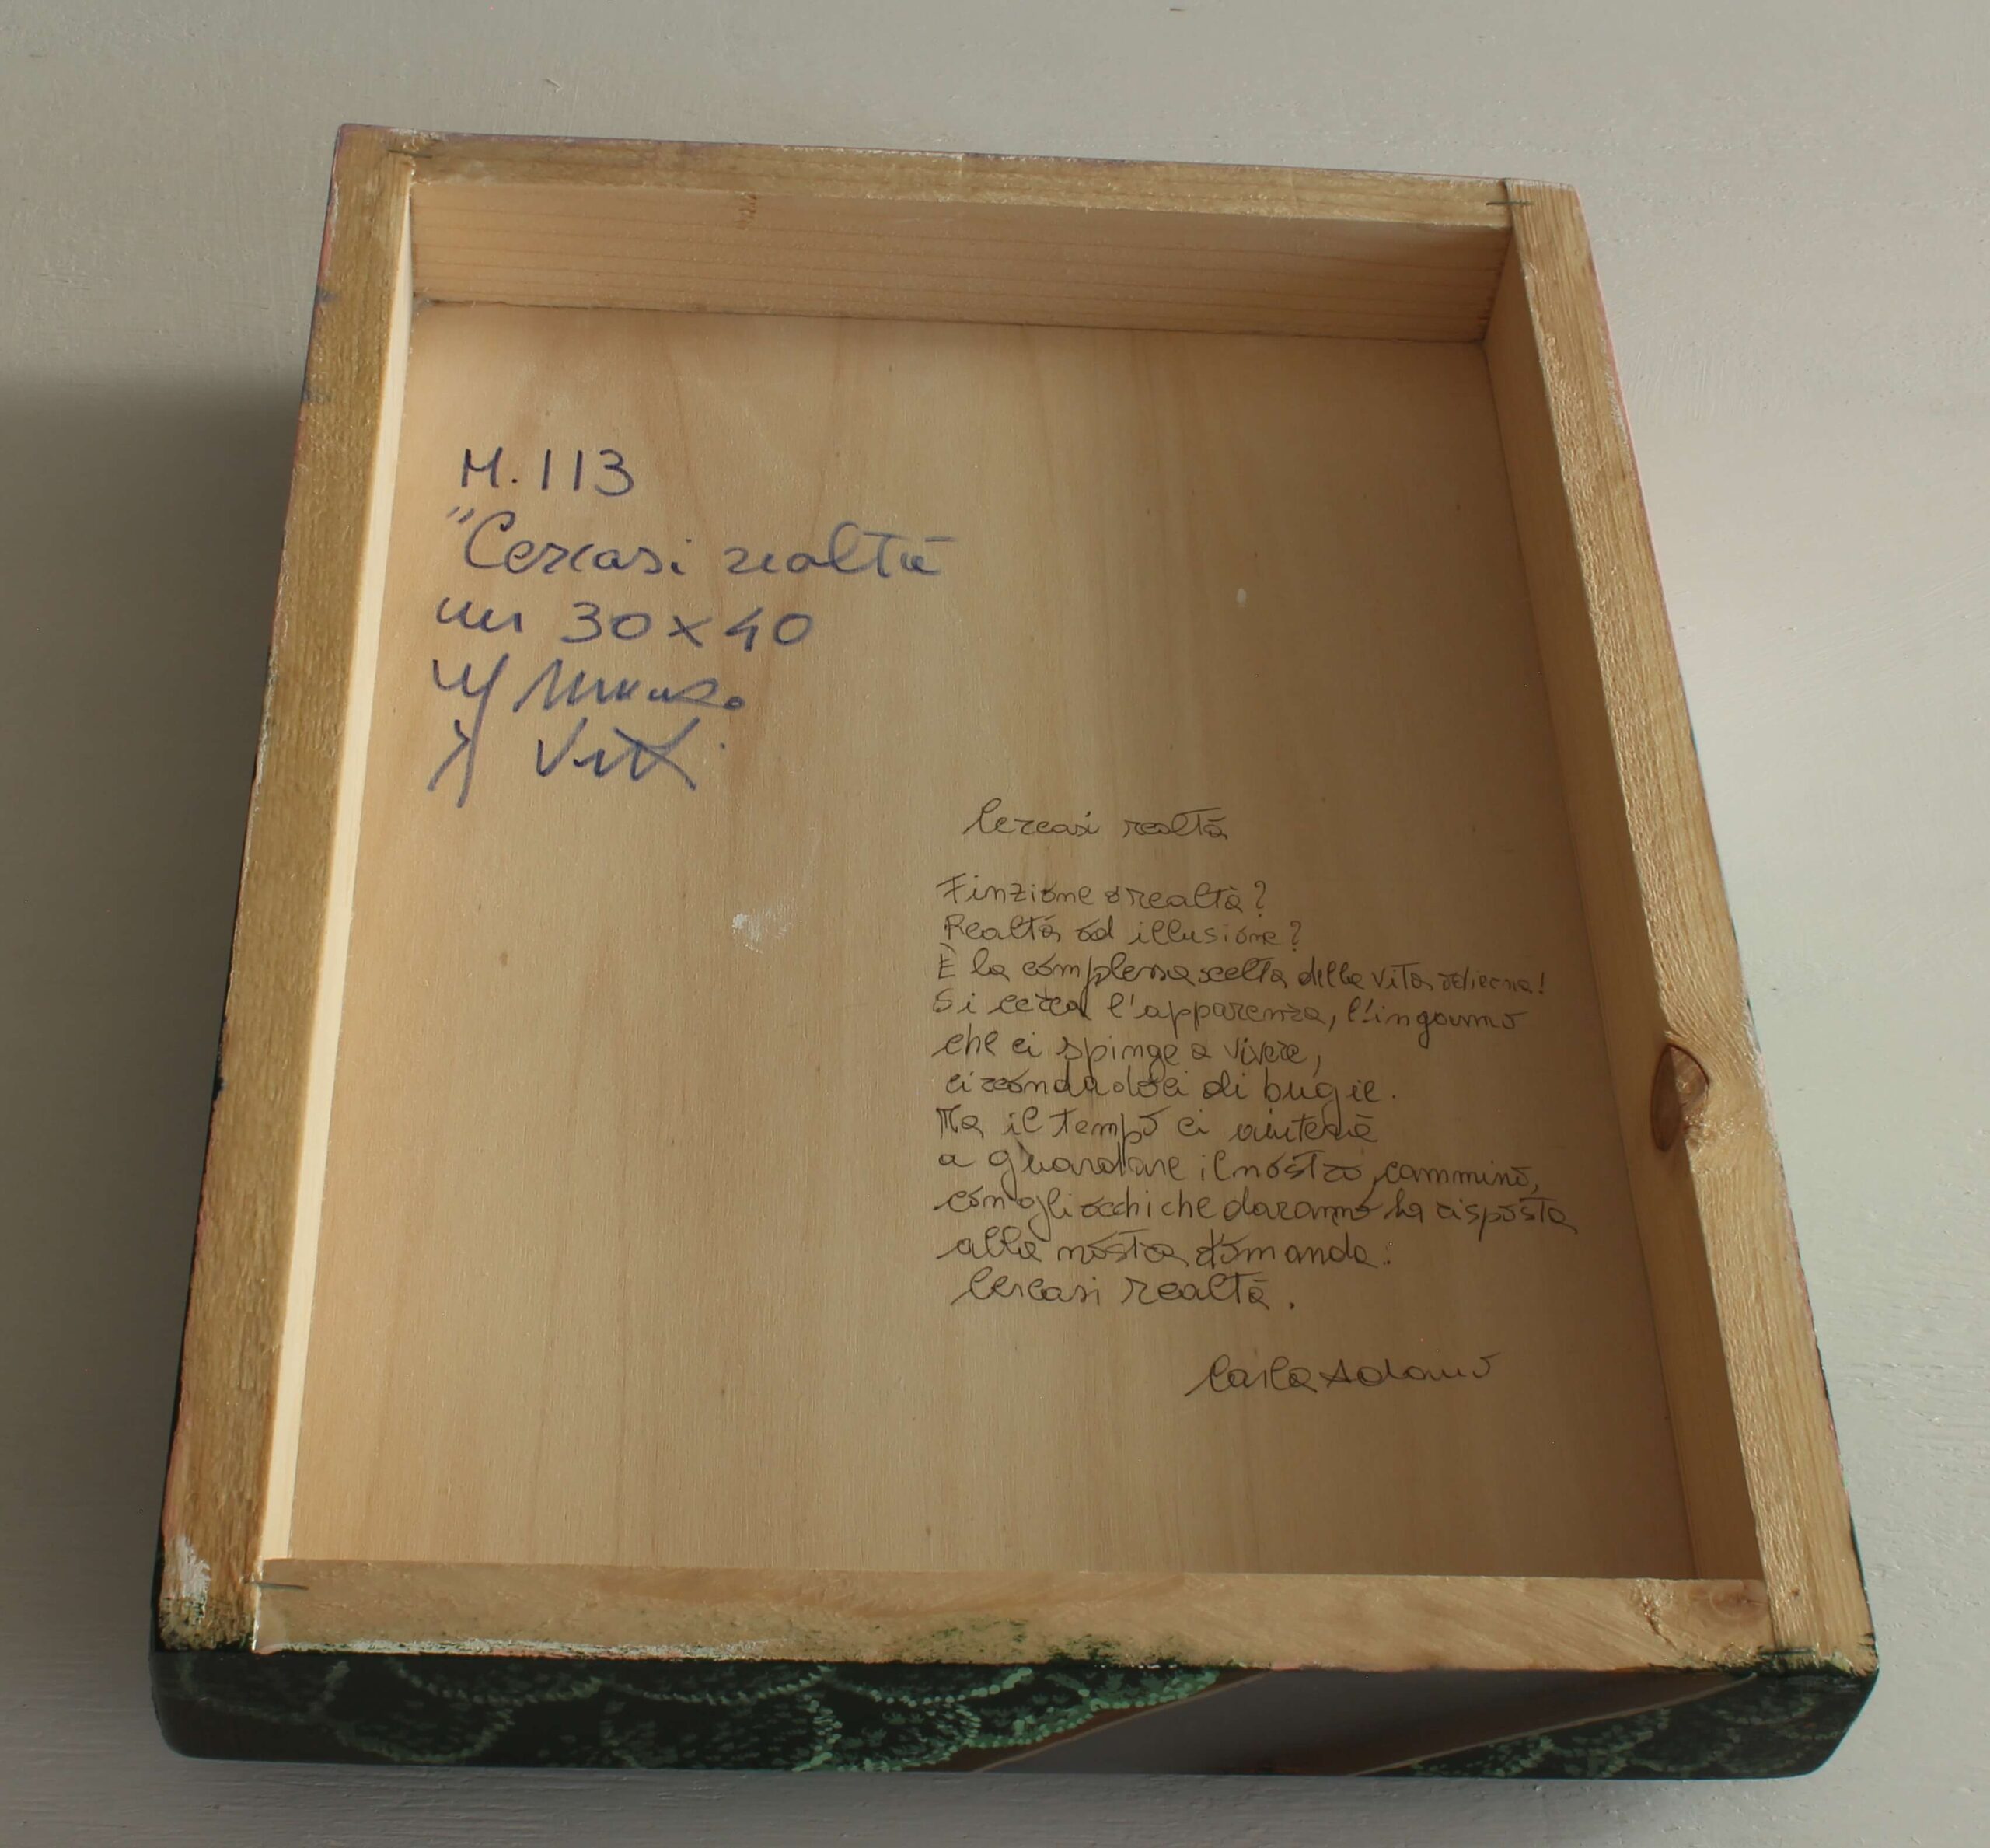 N. 113
"Cercasi realtà
cm 30x40
Cercasi realtà
Finzione o realtà?
Realtà od illusione?
È la complessa scelta della vita odierna!
Si cerca l'apparenza, l'inganno
che ci spinge a vivere,
circondadoci di bugie.
Ma il tempo ci aiuterà
a guardare il nostro cammino,
con gli occhi che daranno la risposta
alla nostra domanda:
Cercasi realtà.
Carla Adamo